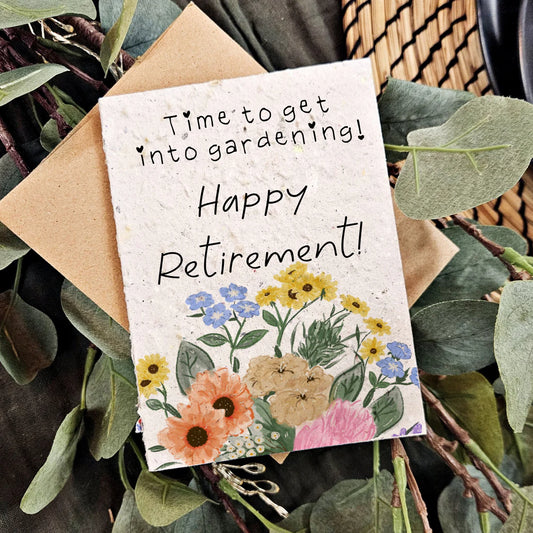 Time to get
into gardening!
Happy
Retirement!